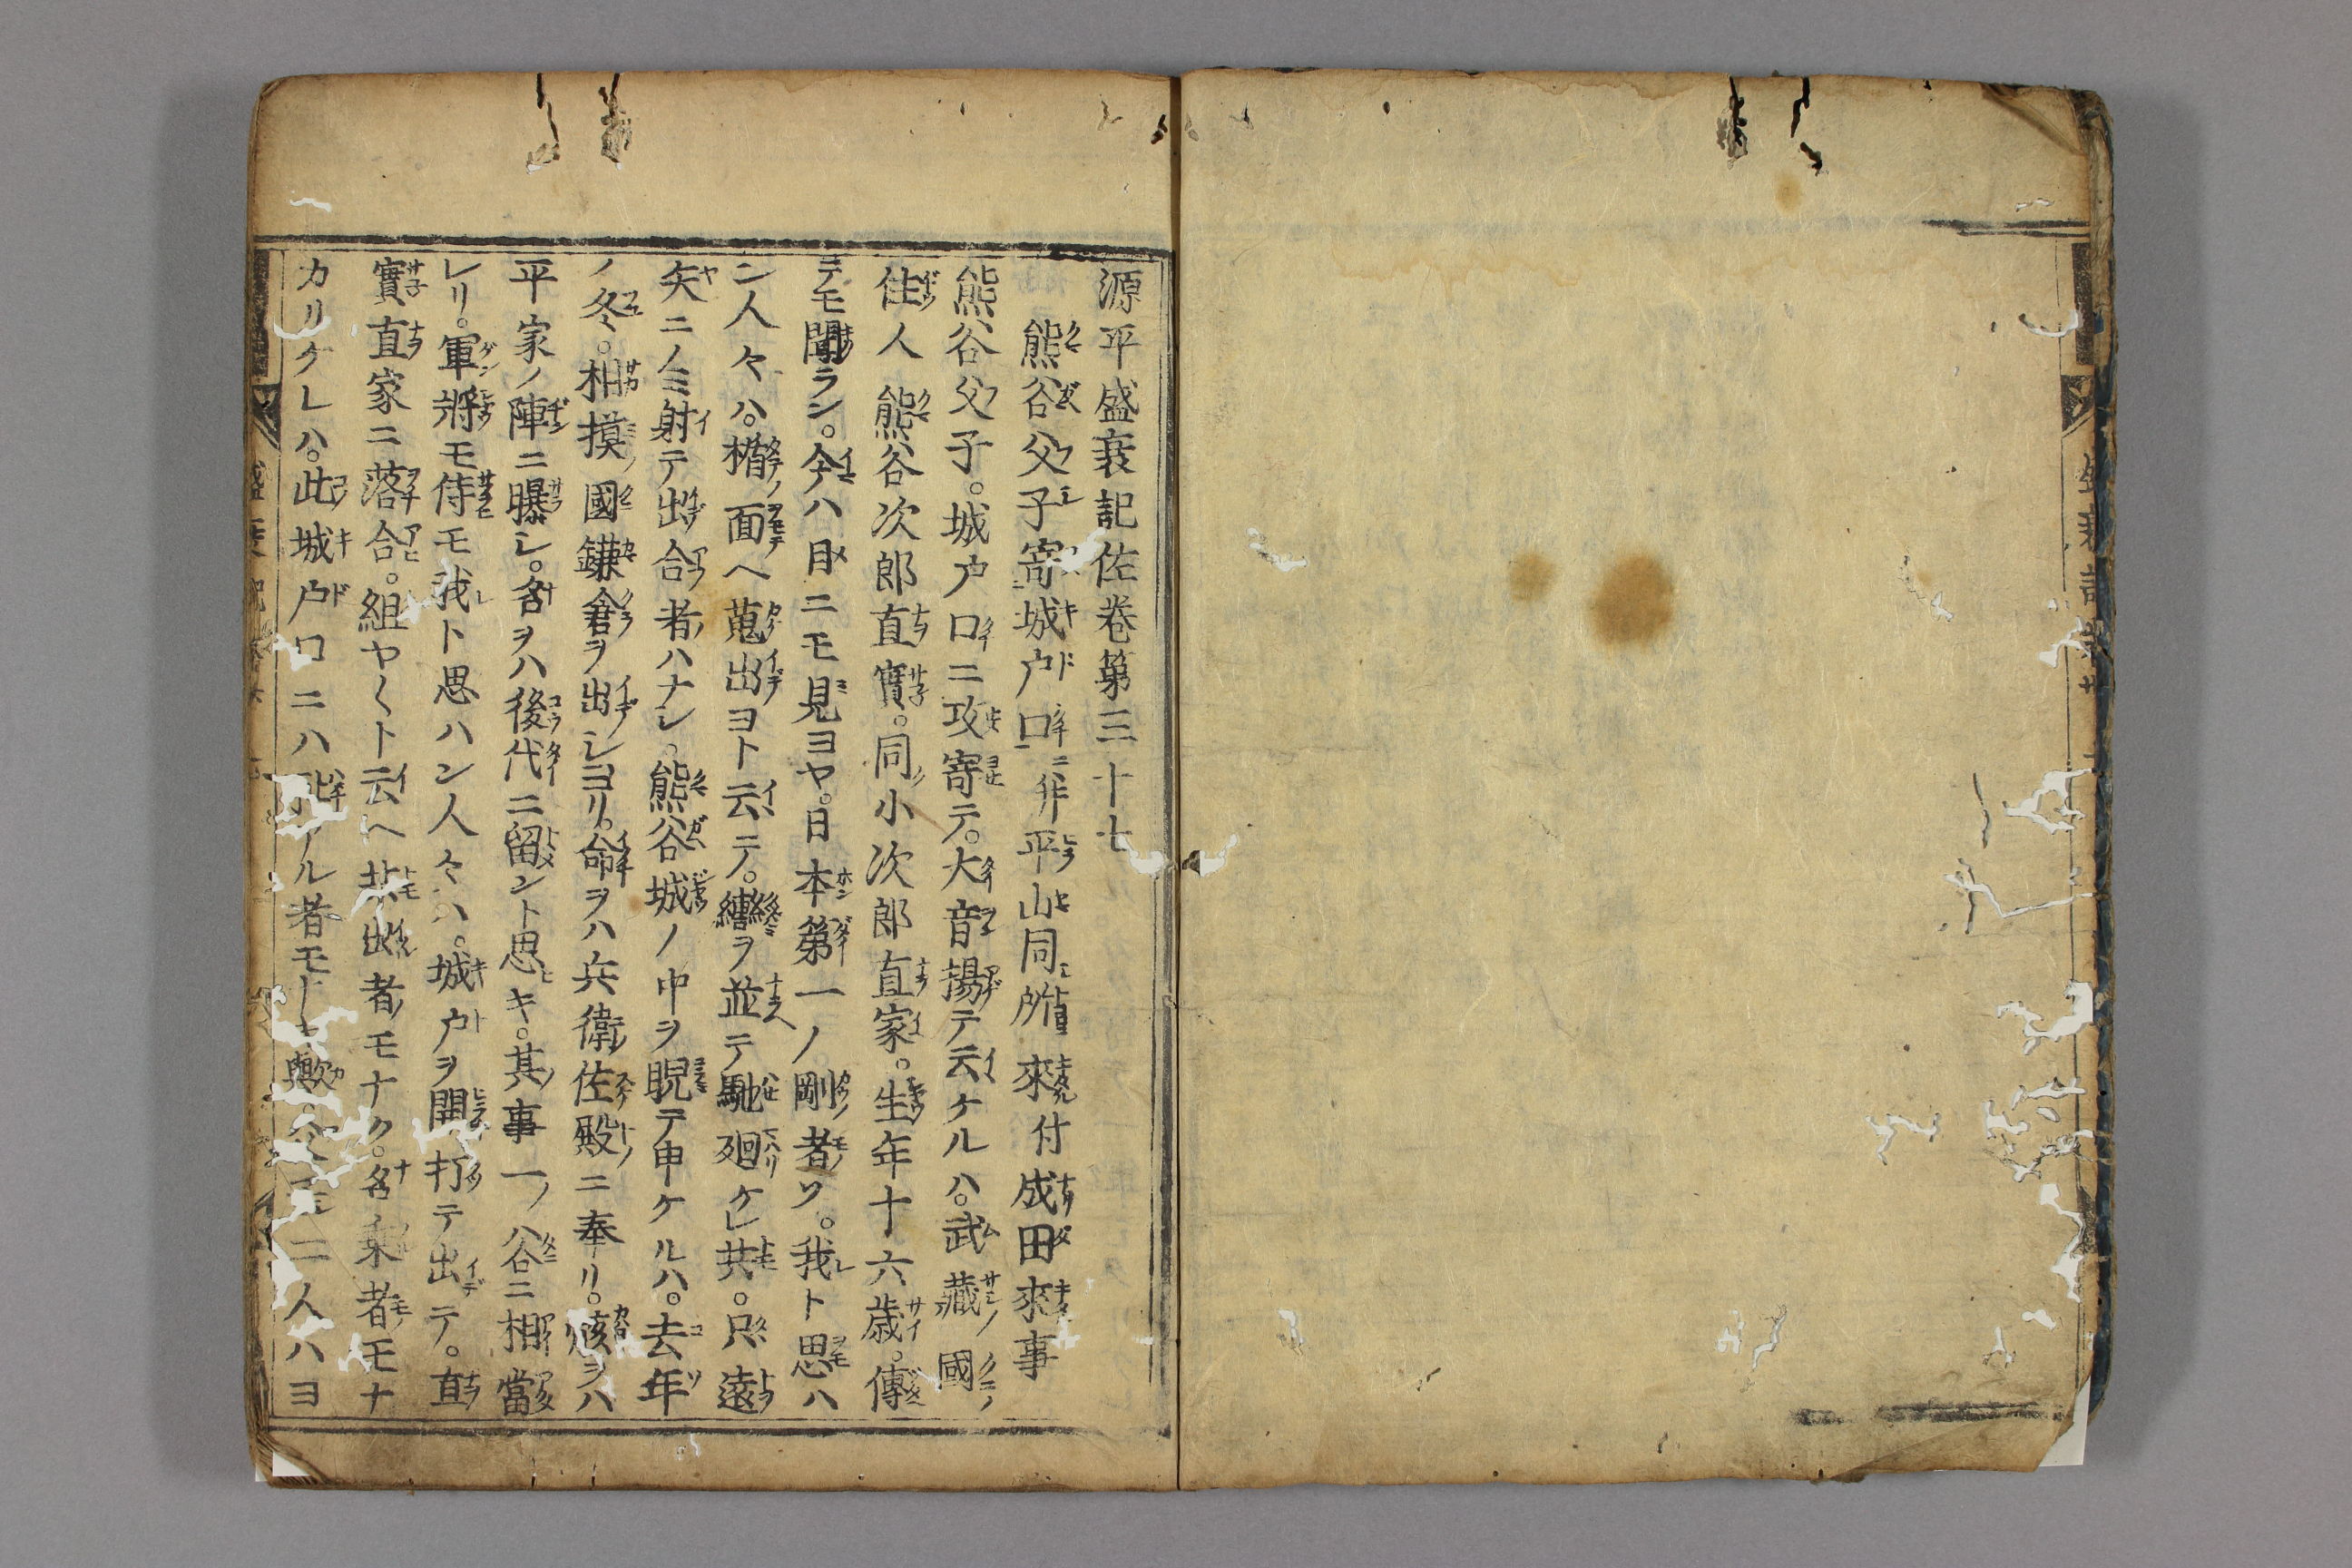 源平盛衰記佐巻第三十七
熊谷父子寄城戸口并平山同所來付成田來事
熊谷父子。城戸口ニ攻寄テ。大音揚テ云ケルハ。武藏國
住人熊谷次郎直實。同小次郎直家。生年十六歳。傳
テモ聞ラン。今ハ目ニモ見ヨヤ。日本第一ノ剛者ソ。我ト思ハ
ン人々ハ。楯ノ面ヘ蒐出ヨト云テ。轡ヲ並テ馳廻ケレ共。只遠
矢ニノミ射テ出合者ハナシ。熊谷城ノ中ヲ睨テ申ケルハ。去年
ノ冬。相摸國鎌倉ヲ出シヨリ。命ヲハ兵衛佐殿ニ奉リ。骸ヲハ
平家ノ陣ニ曝シ。名ヲハ後代ニ留ント思キ。其事一ノ谷ニ相當
レリ。軍將モ侍モ我ト思ハン人々ハ。城戸ヲ開打テ出テ。直
實直家ニ落合。組ヤ〱ト云ヘ共出者モナク。名乗者モナ
カリケレハ。此城戸口ニハ アル者モ 歟。 二人ハヨ